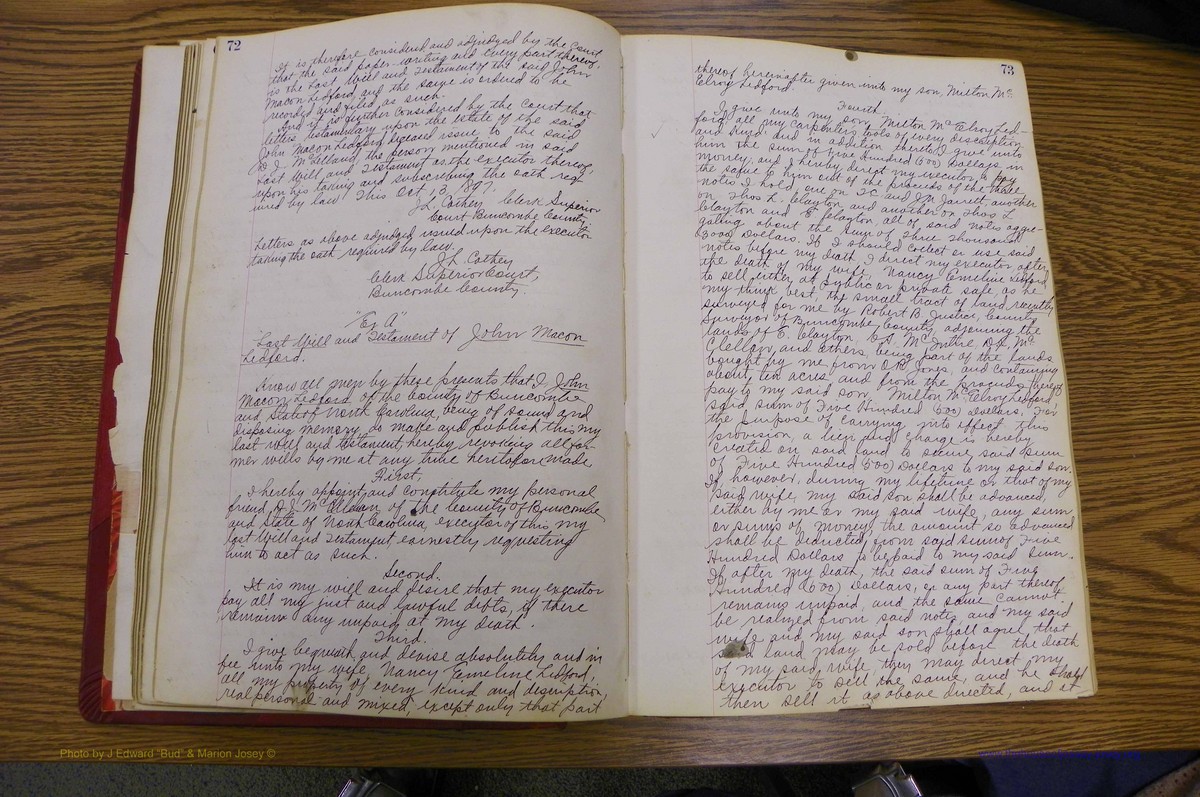 72
It is therefore considered and adjudged by the Court
that the said paper-writing and every part thereof
is the Last Will and Testament of the said John
Macon Ledford and the same is ordered to be
recorded and filed as such.
And it is further considered by the Court that
letters testamentary upon the estate of the said
John Macon Ledford, deceased issue to the said
D. S. McClelland, the person mentioned in said
Last Will and Testament as the executor thereof,
upon his taking and subscribing the oath req-
uired by law. This Oct 13, 1897.
J. L. Cathey Clerk Superior
Court Buncombe County
Letters as above adjudged issued upon the executor
taking the oath required by law.
J. L. Cathey
Clerk Superior Court,
Buncombe County.
"Ex A"
Last Will and Testament of John Macon
Ledford.
Know all men by these presents that I, John
Macon Ledford of the County of Buncombe
and State of North Carolina, being of sound and
disposing memory, do make and publish this my
last will and testament, hereby revoking all for-
mer wills by me at any time heretofore made.
First.
I hereby appoint and constitute my personal
friend, of the County of Buncombe
and State of North Carolina, executor of this my
last Will and Testament, earnestly requesting
him to act as such.
Second.
It is my will and desire that my executor
pay all my just and lawful debts, if there
remains any unpaid at my death.
Third.
I give bequeath and devise absolutely and in
fee unto my wife, Nancy Emeline Ledford,
all my property of every kind and description,
real personal and mixed, except only that part
73
thereof hereinafter given unto my son, Milton Mc
Elroy Ledford.
Fourth.
I give unto my son, Milton McElroy Led-
ford all my carpenters tools of every description
and kind. and in addition thereto I give unto
him the sum of Five Hundred (500) Dollars in
money, and I hereby direct my executor to pay
the same to him out of the proceeds of the three
notes I hold, one on and J. M. Jarrett, another
on Thos L. Clayton and another on Thos L
Clayton and E Clayton, all of said notes aggre-
gating about the sum of Three Thousand
(3000) Dollars. If I should collect or use said
notes before my death, I direct my executor, after
the death of my wife, Nancy Emeline Ledford,
to sell either at public or private sale, as he
may think best, the small tract of land recently
surveyed for me by Robert B. Justice, County
Surveyor of Buncombe County, adjoining the
lands of E. Clayton, McIntire, D. S. Mc
Clellan, and others, being part of the lands
bought by me from Jones, and containing
about ten acres and from the proceeds hereof
pay to my said son, Milton McElroy Ledford
said sum of Five Hundred (500) Dollars. For
the purpose of carrying into effect this
provision, a lien and charge is hereby
created on said land to secure said sum
of Five Hundred (500) Dollars to my said son.
If, however, during my lifetime or that of my
said wife, my said son shall be advanced,
either by me or my said wife, any sum
or sums of money the amount so advanced
shall be deducted from said sum of Five
Hundred Dollars to be paid to my said son.
If after my death, the said sum of Five
Hundred (500) Dollars, or any part thereof
remains unpaid, and the same cannot
be realized from said notes, and my said
wife and my said son shall agree that
said land may be sold before the death
of my said wife they may direct my
executor to sell the same, and he shall
then sell it as above directed, and at
Photo by J Edward "Bud" & Marion Josey ©